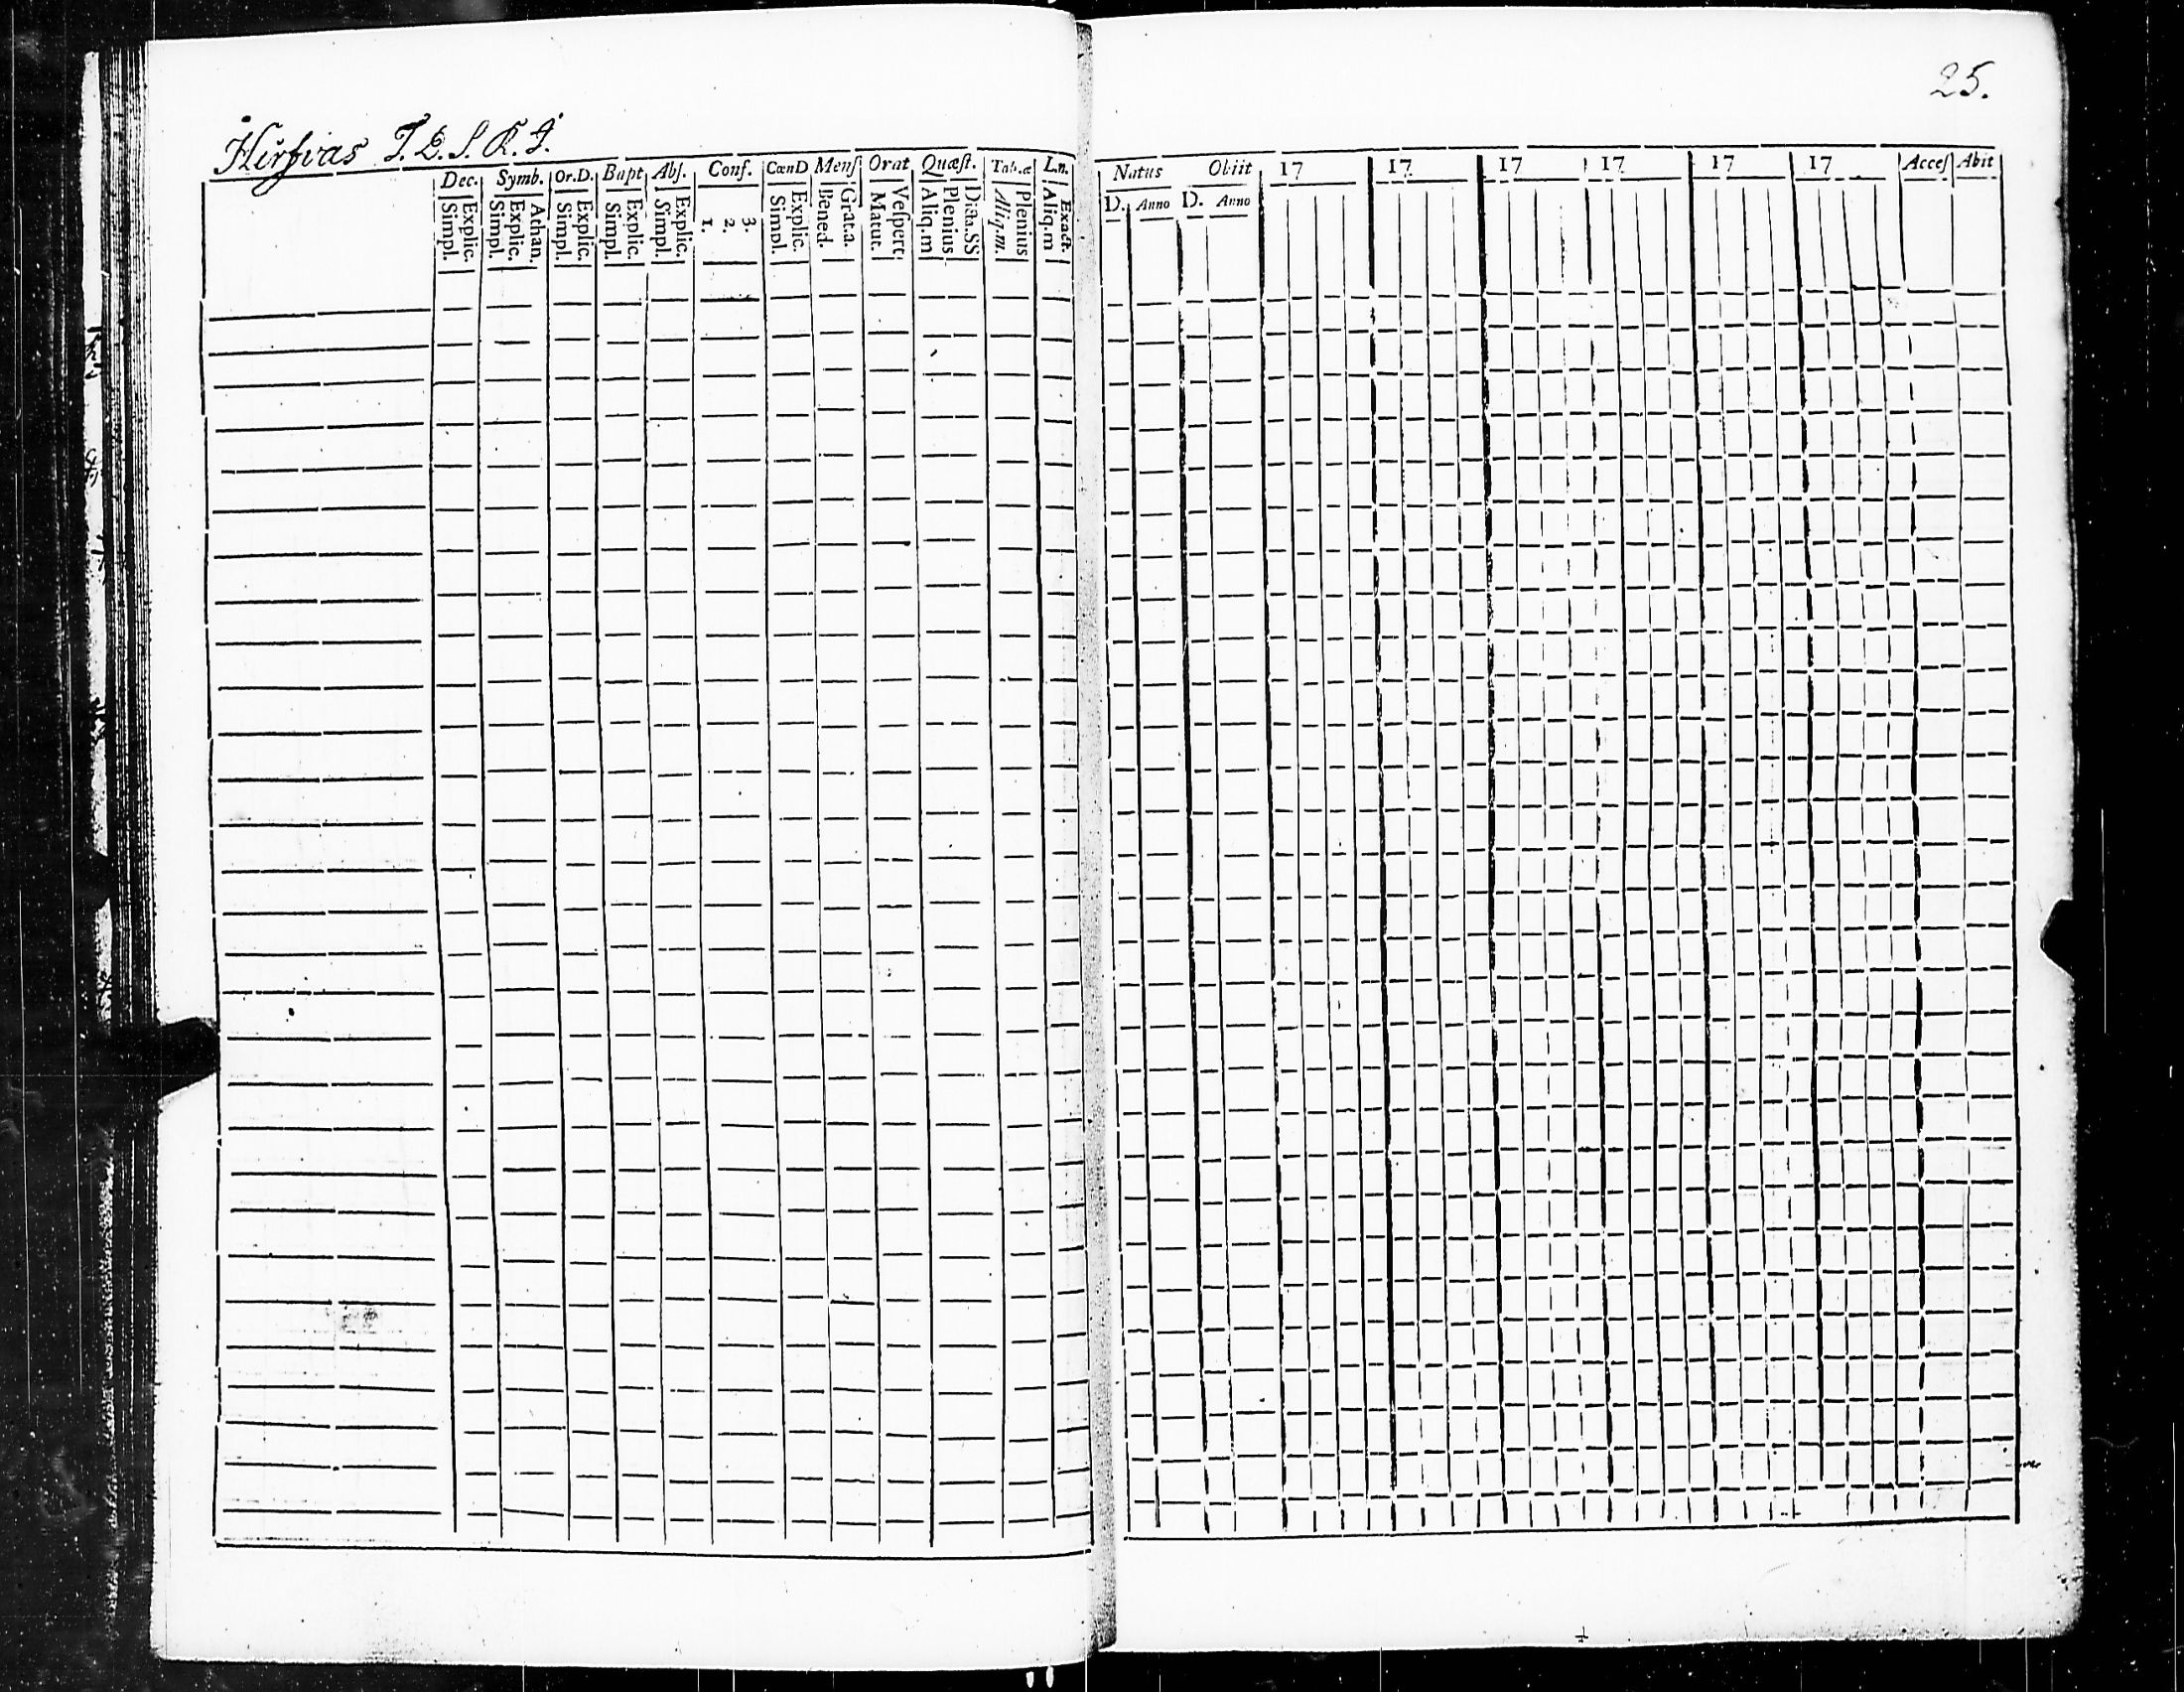 25.
Hirfivas T. L. S. K. J.
Dec. Symb. Or.D. Bapt Abſ. Conf. CœnD Menſ Orat Quæſt. Tab.æ L.n.
Simpl. Explic. Simpl. Explic. Athan. Simpl. Explic. Simpl. Explic. Simpl. Explic. 1. 2. 3. Simpl. Explic. Bened. Grat.a. Matut. Veſpert Aliq.m Plenius Dicta.SS Aliq.m. Plenius Aliq.m Exact.
Natus Obiit 17 17 17 17 17 17 Acceſ Abit
D. Anno D. Anno